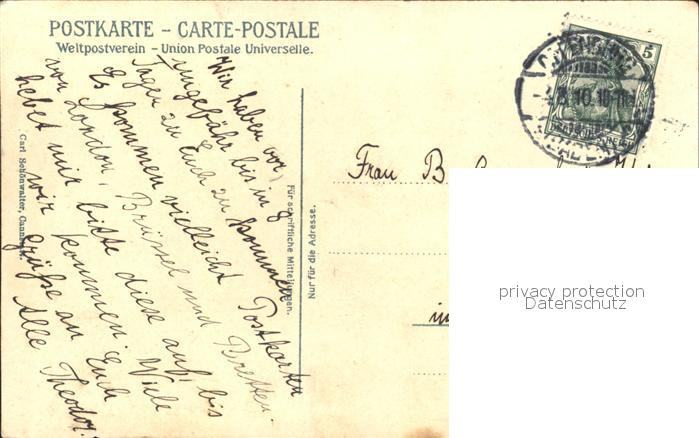 POSTKARTE – CARTE-POSTALE
Weltpostverein – Union Postale Universelle.
Wir haben vor,
ungefähr bis in 8
Tagen zu Euch zu kommen.
Es kommen vielleicht Postkarten
von London, Brüssel und Bretten.
hebet mir bitte diese auf, bis
wir kommen. Viele
Grüße an Euch
Alle Theodor.
Carl Schönwalter, Cannstatt.
Für schriftliche Mitteilungen.
Nur für die Adresse.
5
10.10-11
Frau B
in
privacy protection
Datenschutz